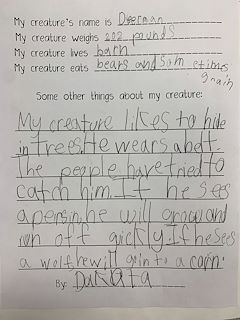 My creature's name is Deerman
My creature weighs 202 pounds
My creature lives barn
My creature eats bears and som etimes
grain
Some other things about my creature:
My creature likes to hide
in trees. He wears a belt.
The people have tried to
catch him. If he sees
a persin, he will growl and
run off quickly. If he sees
a wolf he will go in to a
By: Dakota